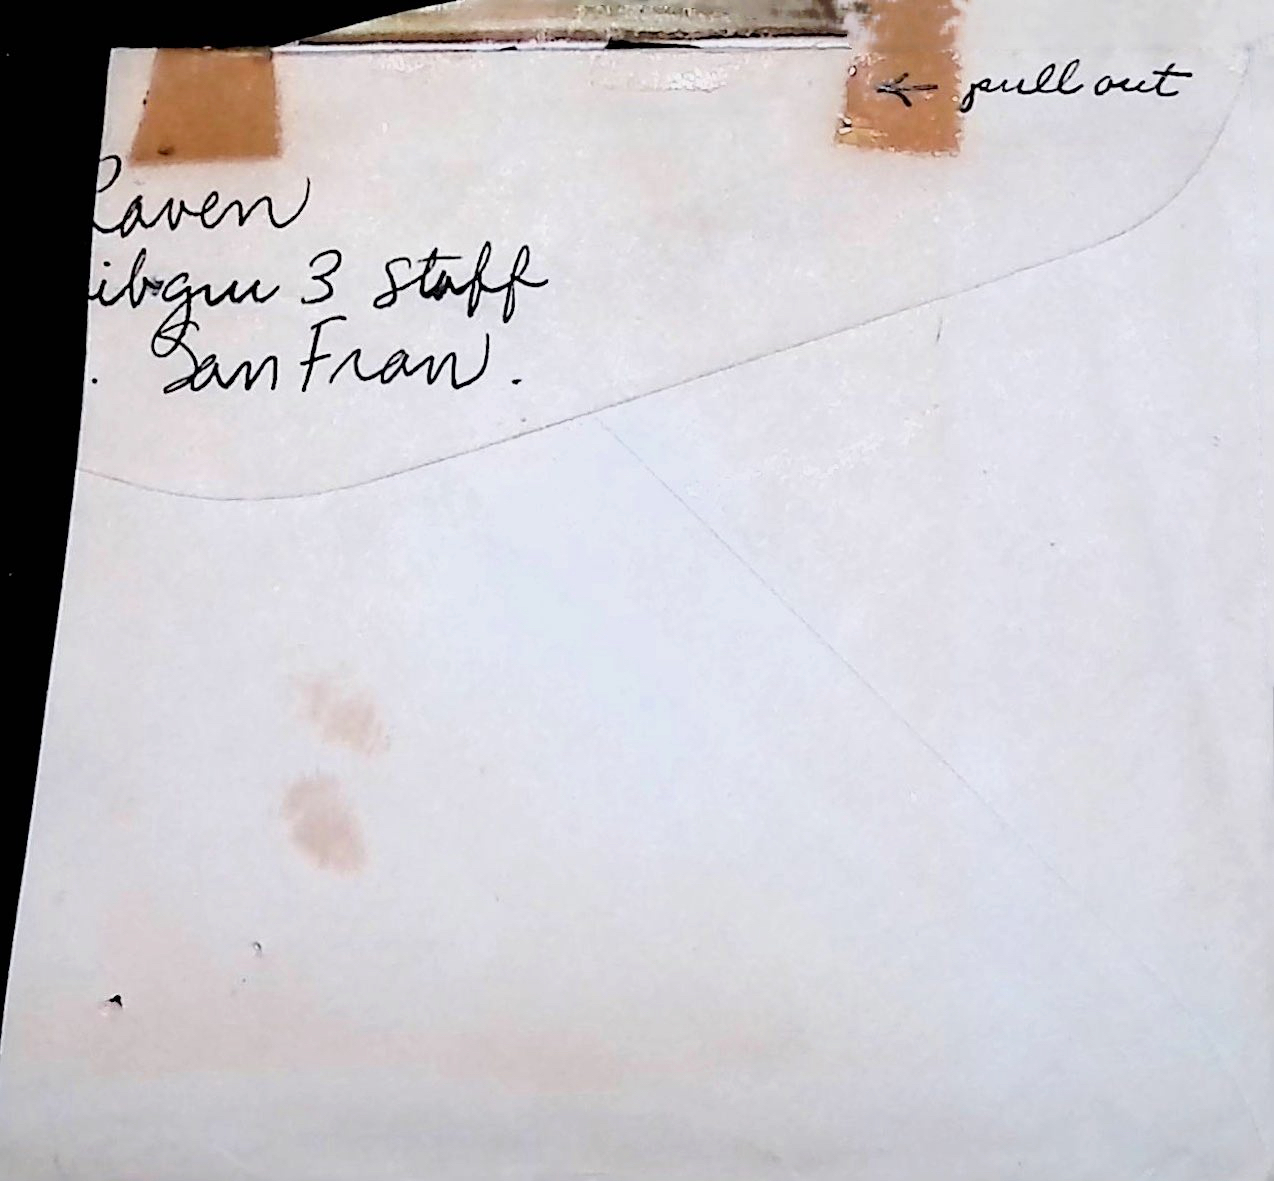 ← pull out
Raven
ibgru 3 staff
. San Fran.